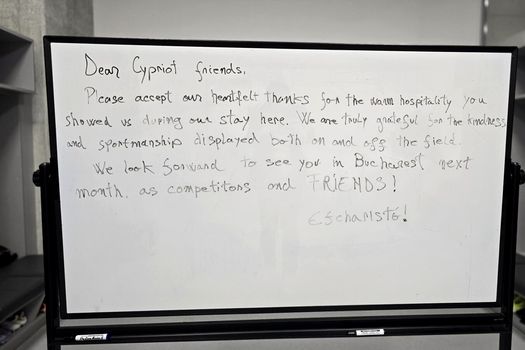 Dear Cypriot friends,
Please accept our heartfelt thanks for the warm hospitality you
showed us during our stay here. We are truly grateful for the kindness
and sportmanship displayed both on and off the field.
We look forward to see you in Bucharest next
month, as competitors and FRIENDS!
Efcharisto!